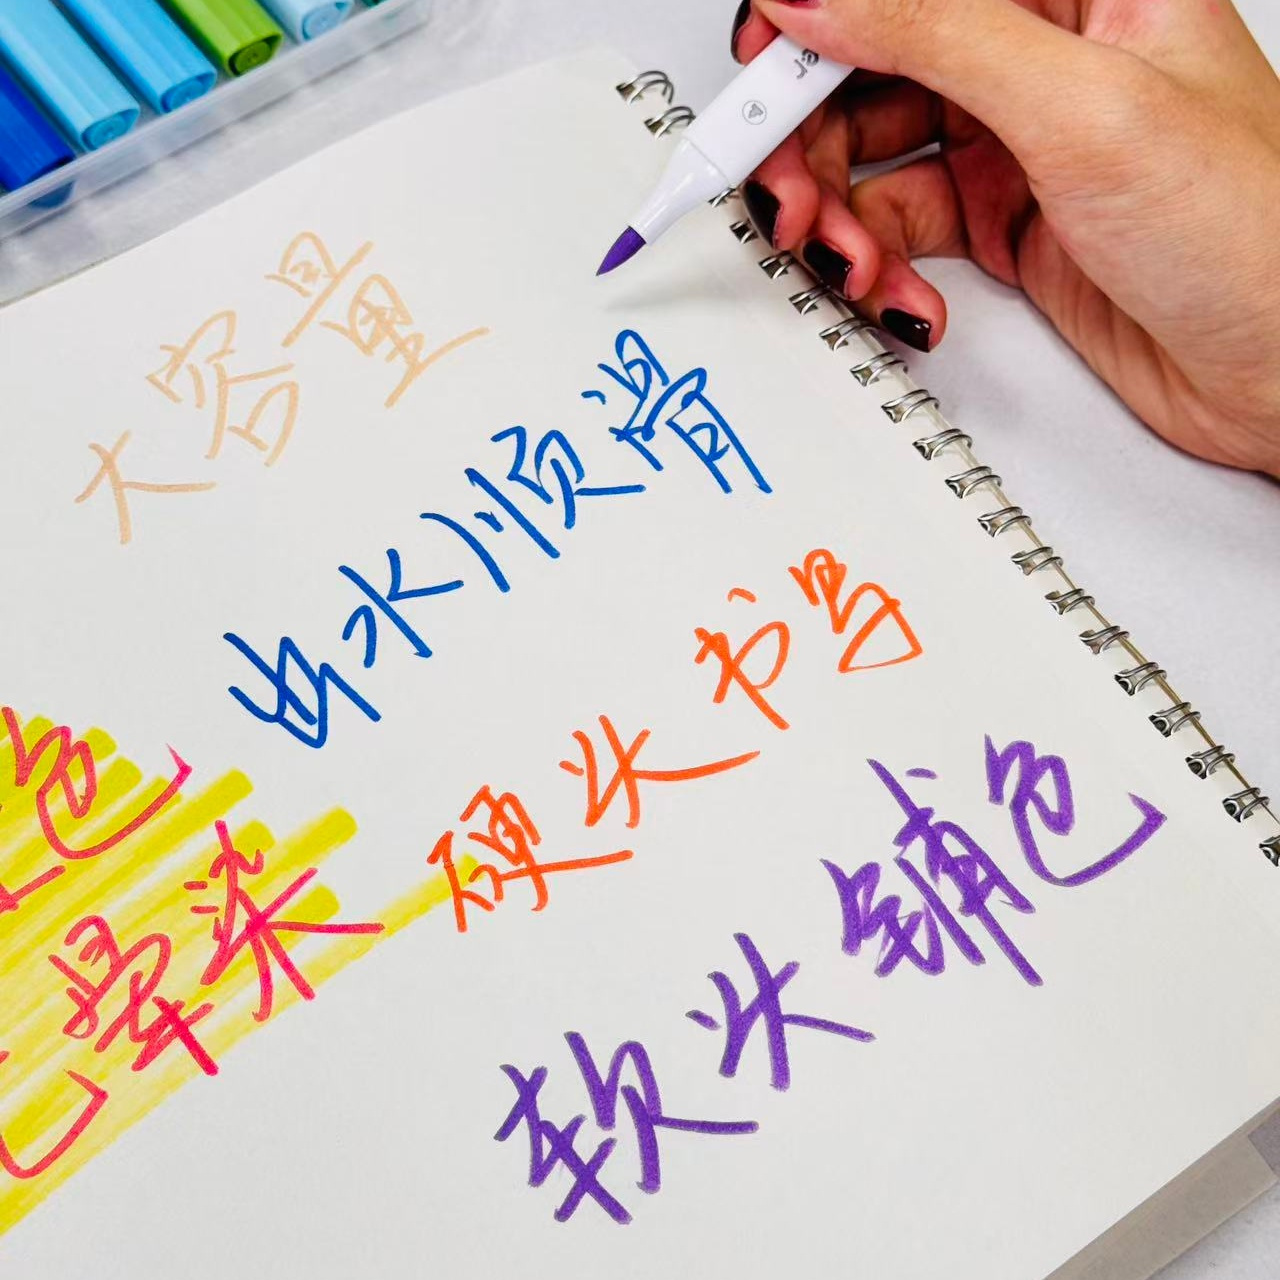 大容量
出水顺滑
硬头书写
软头铺色
色
晕染